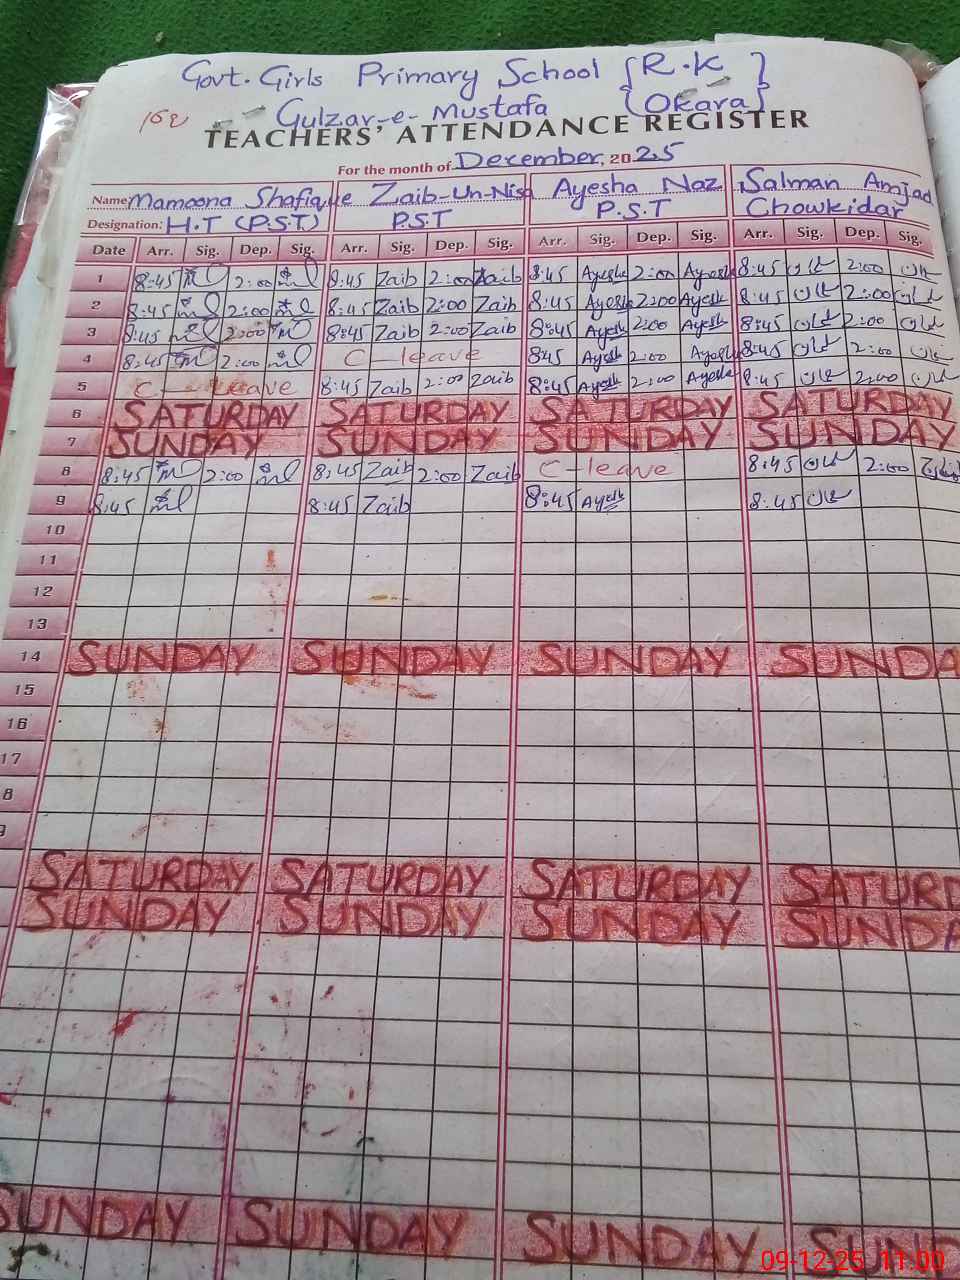 Govt. Girls Primary School {R.K}
Gulzar-e-Mustafa {Okara}
TEACHERS' ATTENDANCE REGISTER
For the month of December, 2025
Name Mamoona Shafique Zaib-Un-Nisa Ayesha Naz Salman Amjad
Designation: H.T (P.S.T) P.S.T P.S.T Chowkidar
Date Arr. Sig. Dep. Sig. Arr. Sig. Dep. Sig. Arr. Sig. Dep. Sig. Arr. Sig. Dep. Sig.
1 8:45 2:00 8:45 Zaib 2:00 Zaib 8:45 Ayesh 2:00 Ayesh 8:45 2:00
2 8:45 2:00 8:45 Zaib 2:00 Zaib 8:45 Ayesh 2:00 Ayesh 8:45 2:00
3 8:45 2:00 8:45 Zaib 2:00 Zaib 8:45 Ayesh 2:00 Ayesh 8:45 2:00
4 8:45 2:00 C-leave 8:45 Ayesh 2:00 Ayesh 8:45 2:00
5 C-leave 8:45 Zaib 2:00 Zaib 8:45 Ayesh 2:00 Ayesh 8:45 2:00
6 SATURDAY SATURDAY SATURDAY SATURDAY
7 SUNDAY SUNDAY SUNDAY SUNDAY
8 8:45 2:00 8:45 Zaib 2:00 Zaib C-leave 8:45 2:00
9 8:45 8:45 Zaib 8:45 Ayesh 8:45
10
11
12
13
14 SUNDAY SUNDAY SUNDAY SUNDA
15
16
17
8
9
SATURDAY SATURDAY SATURDAY SATURD
SUNDAY SUNDAY SUNDAY SUNDA
SUNDAY SUNDAY SUNDAY SUND
09-12-25 11:00